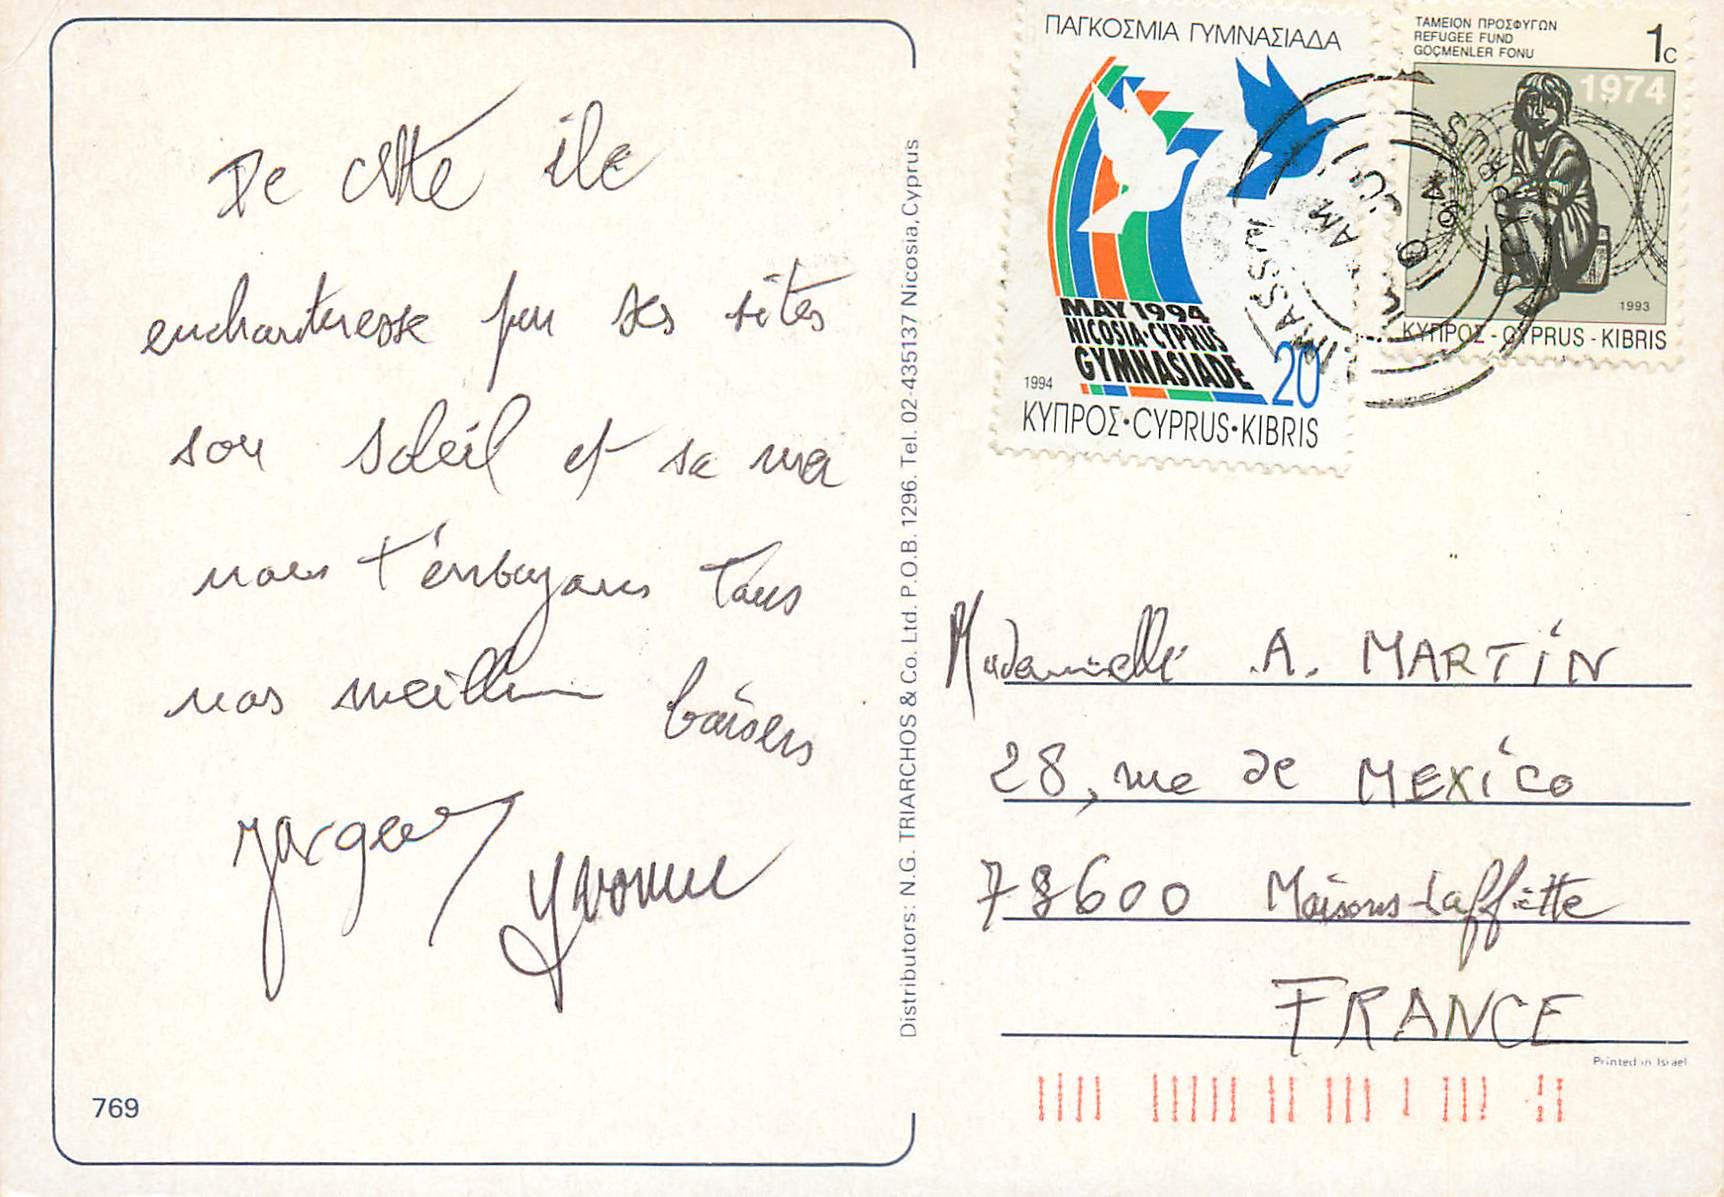 De cette île
enchanteresse par ses sites
son soleil et sa mer
nous t'envoyons tous
nos meilleurs baisers
Yvonne
769
Distributors: N.G. TRIARCHOS & Co. Ltd. P.O.B. 1296. Tel. 02-435137 Nicosia, Cyprus
ΠΑΓΚΟΣΜΙΑ ΓΥΜΝΑΣΙΑΔΑ
MAY 1994
NICOSIA·CYPRUS
GYMNASIADE
1994
20
ΚΥΠΡΟΣ·CYPRUS·KIBRIS
ΤΑΜΕΙΟΝ ΠΡΟΣΦΥΓΩΝ
REFUGEE FUND
GÖÇMENLER FONU
1c
1974
1993
ΚΥΠΡΟΣ - CYPRUS - KIBRIS
AM
94
CYPRUS
Mademoiselle A. MARTIN
28, rue de MEXICO
78600 Maisons-Laffitte
FRANCE
Printed in Israel